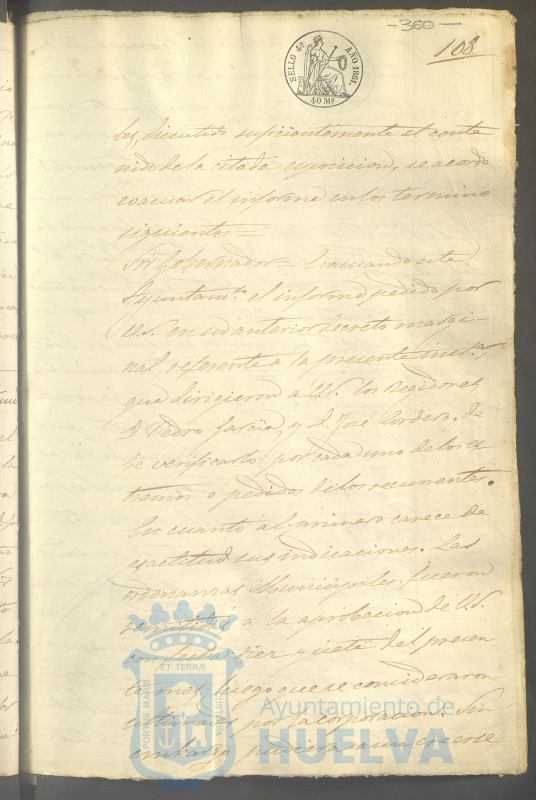 -360-
108
SELLO 4º AÑO 1861.
40 Ms
bes, discutido suficientemente el conte
nido de la citada exposicion, se acordó
evacuar el informe en los termino
siguientes=
Sor. Gobernador= Evacuando este
Ayuntamto. el informe pedido por
V.S. en su anterior decreto margi-
nal, referente a la presente insta.,
que dirigieron a V.S. los Regidores,
D. Pedro Garcia, y D. José Cordero, de
be verificarlo por cada uno de los es
tremos o pedidos de los recurrentes.
En cuanto al primero carece de
exactitud sus indicaciones. Las
ordenanzas Municipales fueron
remitidas a la aprobacion de V.S.
con fecha diez y siete del presen
te mes, luego que se consideraron
ultimadas por la corporacion. Sin
embargo pudiera aun creerse
PORTUS MARIS ET TERRÆ CUSTODIA
Ayuntamiento de
HUELVA